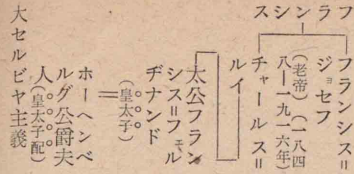 フランシス
フランシス＝
ジョセフ
（老帝）（一八四
八―一九一六年）
チャールス＝
ルイ
太公フラン
シス＝フェル
ヂナンド
（皇太子）
ホーヘンベ
ルグ公爵夫
人（皇太子配）
大セルビヤ主義